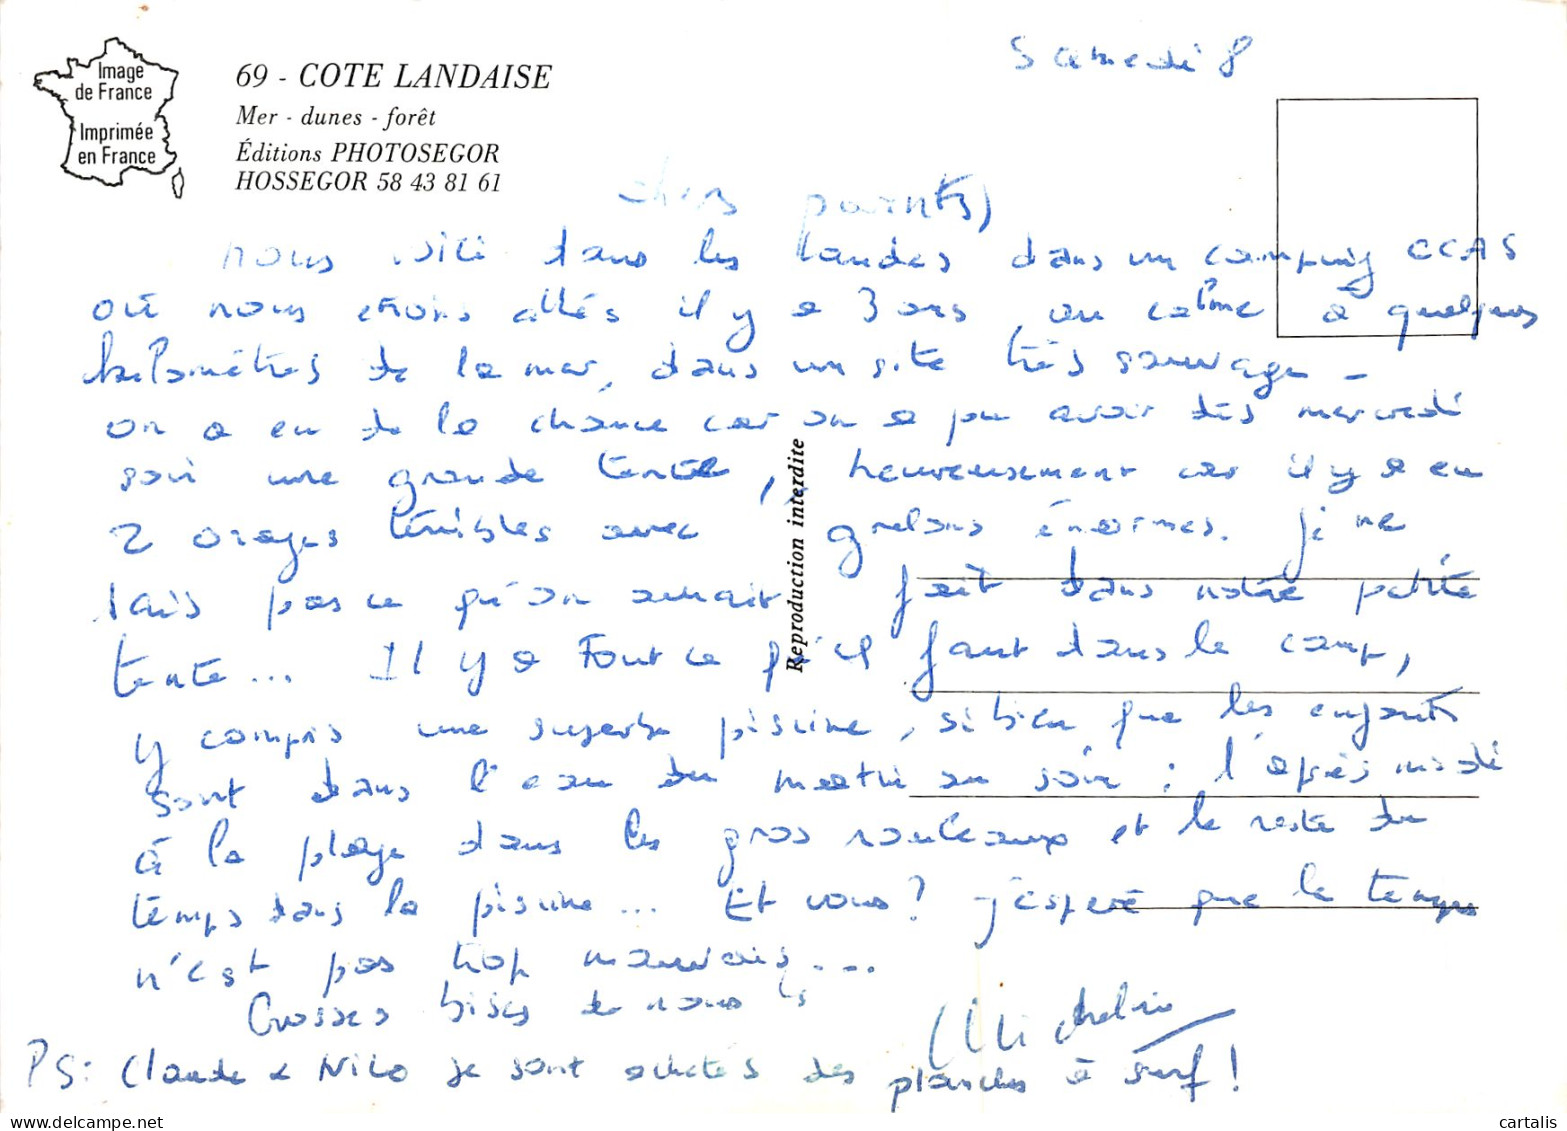 Image
de France
Imprimée
en France
69 - COTE LANDAISE
Mer - dunes - forêt
Éditions PHOTOSEGOR
HOSSEGOR 58 43 81 61
Reproduction interdite
Samedi 8
chers parents,
nous voici dans les Landes dans un camping CCAS
où nous étions allés il y a 3 ans, au calme à quelques
kilomètres de la mer, dans un site très sauvage -
on a eu de la chance car on a pu avoir dès mercredi
soir une grande tente, heureusement car il y a eu
2 orages terribles avec grelons énormes. Je ne
sais pas ce qu'on aurait fait dans notre petite
tente... Il y a Tout ce qu'il faut dans le camp,
y compris une superbe piscine, si bien que les enfants
sont dans l'eau du matin au soir : l'après midi
à la plage dans les gros rouleaux et le reste du
temps dans la piscine... Et vous? j'espère que le temps
n'est pas trop mauvais...
Grosses bises de nous
PS: Claude & Nico se sont achetés des planches à surf!